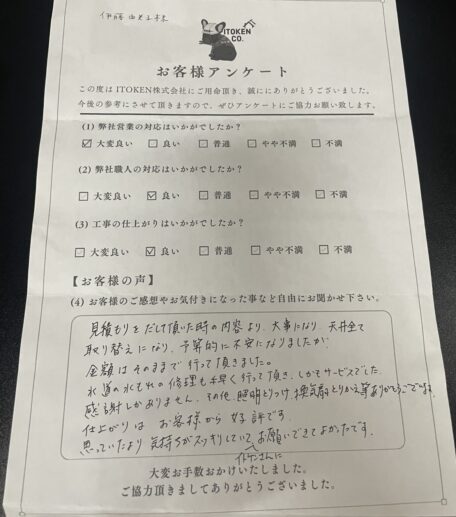 伊藤 様
ITOKEN
CO.
お客様アンケート
この度はITOKEN株式会社にご用命頂き、誠ににありがとうございました。
今後の参考にさせて頂きますので、ぜひアンケートにご協力お願い致します。
(1) 弊社営業の対応はいかがでしたか?
☑ 大変良い □ 良い □ 普通 □ やや不満 □ 不満
(2) 弊社職人の対応はいかがでしたか?
□ 大変良い ☑ 良い □ 普通 □ やや不満 □ 不満
(3) 工事の仕上がりはいかがでしたか?
□ 大変良い ☑ 良い □ 普通 □ やや不満 □ 不満
【お客様の声】
(4) お客様のご感想やお気付きになった事など自由にお聞かせ下さい。
見積もりをだして頂いた時の内容より、大事になり、天井全て
取り替えになり、予算的に不安になりましたが
金額はそのままで行って頂きました。
水道の水もれの修理も手早く行って頂き、しかもサービスでした。
感謝しかありません。その他、照明とりつけ、換気扇とりかえ等ありがとうございます。
仕上がりは お客様から好評です。
思っていたより気持ちがスッキリしていて、お願いできてよかったです。
イトケンさんに
大変お手数おかけいたしました。
ご協力頂きましてありがとうございました。